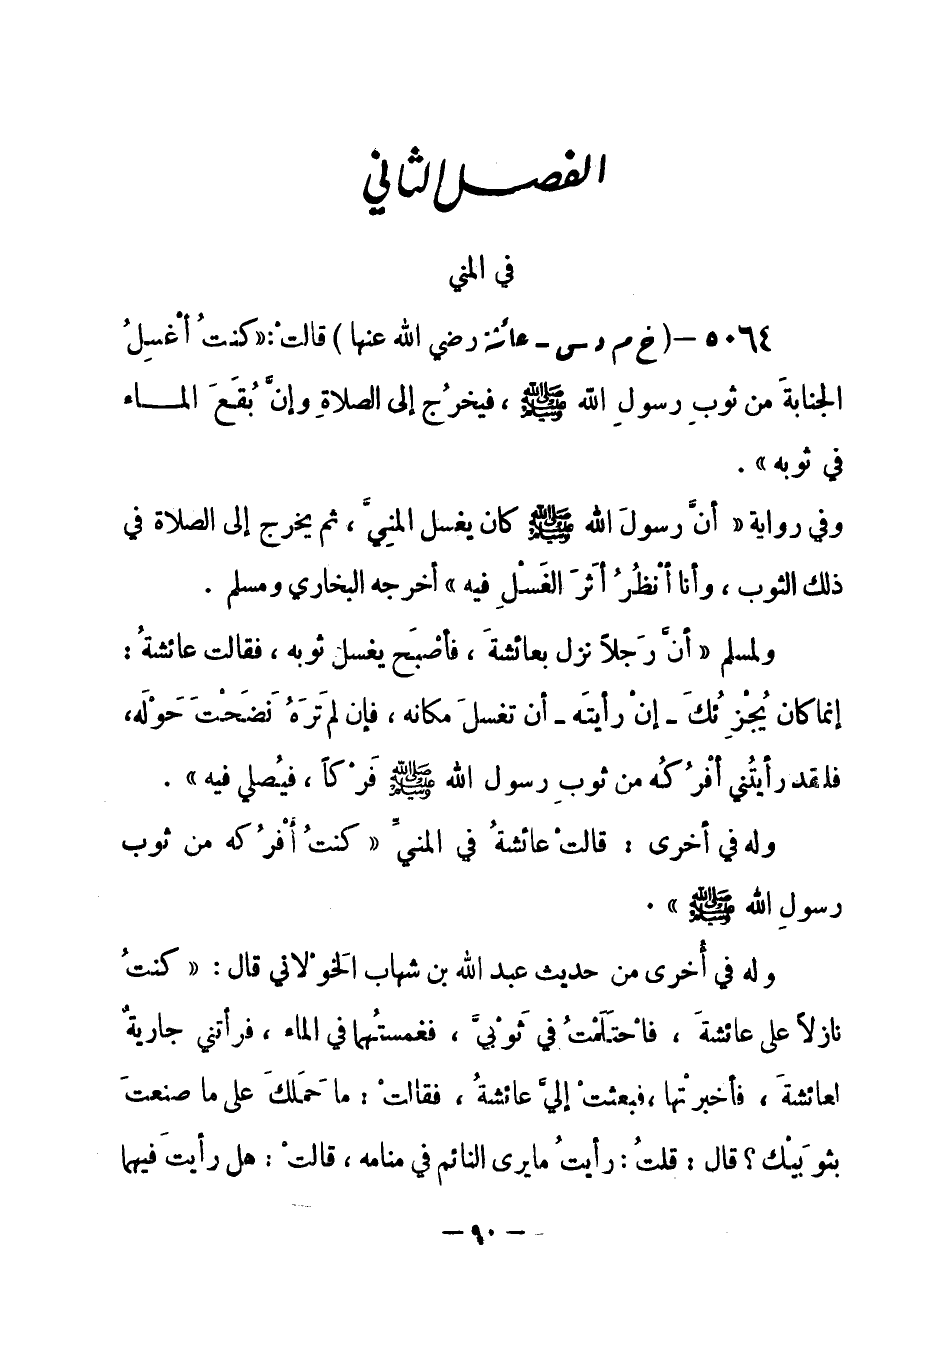 الفصل الثاني
في المني
٥٠٦٤ – ( خ م د س – عائشة رضي الله عنها ) قالتْ : « كنتُ أغْسِلُ
الجنابةَ من ثوبِ رسولِ الله ﷺ ، فيخرُج إلى الصلاةِ وإنَّ بُقَعَ المـــاء
في ثوبه » .
وفي رواية « أنَّ رسولَ الله ﷺ كان يغسل المنِيَّ ، ثم يخرج إلى الصلاة في
ذلك الثوب ، وأنا أنْظُرُ أثَرَ الغَسْلِ فيه » أخرجه البخاري ومسلم .
ولمسلم « أنَّ رَجلاً نزل بعائشةَ ، فأصْبَح يغسل ثوبه ، فقالت عائشةُ :
إنما كان يُجْزِئُكَ – إنْ رأيتَه – أن تغسلَ مكانه ، فإن لم تَرَهُ نَضَحْتَ حَوْلَه،
فلقد رأيتُني أفْرُكُه من ثوبِ رسول الله ﷺ فَرْكاً ، فيُصلي فيه » .
وله في أخرى : قالتْ عائشةُ في المنيِّ « كنتُ أفْرُكه من ثوب
رسولِ الله ﷺ » .
وله في أُخرى من حديث عبد الله بن شهاب الخوْلاني قال : « كنتُ
نازلاً على عائشةَ ، فاحْتَلَمْتُ في ثَوْبيَّ ، فغمستُهما في الماء ، فرأتني جاريةٌ
لعائشةَ ، فأخبرتْها ، فبعثتْ إليَّ عائشةُ ، فقالتْ : ما حَمَلكَ على ما صنعتَ
بثوبَيْك ؟ قال : قلتُ : رأيتُ مايرى النائم في منامه ، قالتْ : هل رأيتَ فيهما
– ٩٠ –